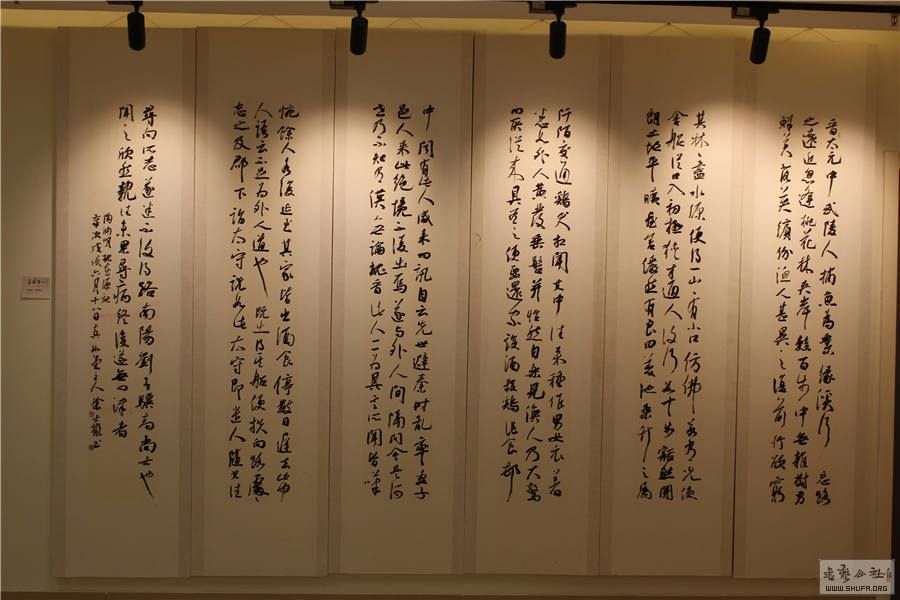 晋太元中武陵人捕魚為業缘溪行忘路
之遠近忽逢桃花林夹岸數百步中無雜樹芳
鮮美落英繽紛漁人甚異之復前行欲窮
其林〻盡水源便得一山〻有小口仿佛若有光便
舍船從口入初極狹才通人復行數十步豁然開
朗土地平曠屋舍儼然有良田美池桑竹之屬
阡陌交通鷄犬相聞其中往来種作男女衣着
悉如外人黄髮垂髫并怡然自樂見漁人乃大驚
問所從来具答之便要還家設酒殺鷄作食村
中聞有此人咸来問訊自云先世避秦時乱率妻子
邑人来此絶境不復出焉遂与外人間隔問今是何
世乃不知有漢無論魏晋此人一一為具言所聞皆嘆
惋餘人各復延至其家皆出酒食停數日辭去此中
人語云不足為外人道也既出得其船便扶向路處〻
志之及郡下詣太守說如此太守即遣人隨其往
尋向所志遂迷不復得路南陽劉子驥高尚士也
聞之欣然規往未果尋病終後遂無問津者
陶渊明桃花源記
歲次戊戌六月十八日真如堂主人徐書
書藝公社
WWW.SHUFA.ORG